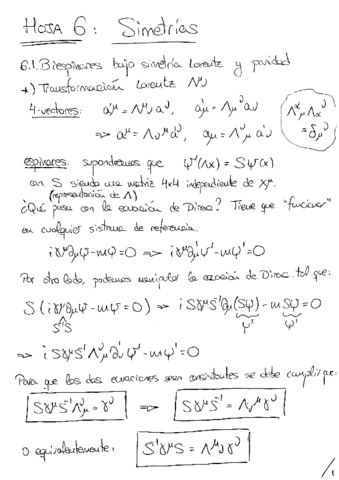 HOJA 6: Simetrías
6.1. Biespinores bajo simetría Lorentz y paridad
→) Transformación Lorentz Λ^μ_ν
4-vectores: a'^μ = Λ^μ_ν a^ν, a'_μ = Λ_μ^ν a_ν
⇒ a^μ = Λ_ν^μ a'^ν, a_μ = Λ^ν_μ a'_ν
Λ^α_μ Λ_α^ν = δ_μ^ν
espinores: supondremos que ψ'(Λx) = Sψ(x)
con S siendo una matriz 4x4 independiente de x^μ.
(representación de Λ)
¿Qué pasa con la ecuación de Dirac? Tiene que "funcionar"
en cualquier sistema de referencia.
iγ^μ∂_μψ - mψ = 0 ⇒ iγ^μ∂'_μψ' - mψ' = 0
Por otro lado, podemos manipular la ecuación de Dirac tal que:
S (iγ^μ∂_μψ - mψ = 0) ⇒ i Sγ^μS^-1∂_μ(Sψ) - m Sψ = 0
S^-1S ψ' ψ'
⇒ i Sγ^μS^-1 Λ^ν_μ ∂'_ν ψ' - mψ' = 0
Para que las dos ecuaciones sean consistentes se debe cumplir que:
Sγ^μS^-1Λ^ν_μ = γ^ν ⇒ Sγ^μS^-1 = Λ_ν^μ γ^ν
o equivalentemente: S^-1γ^μS = Λ^μ_ν γ^ν
1